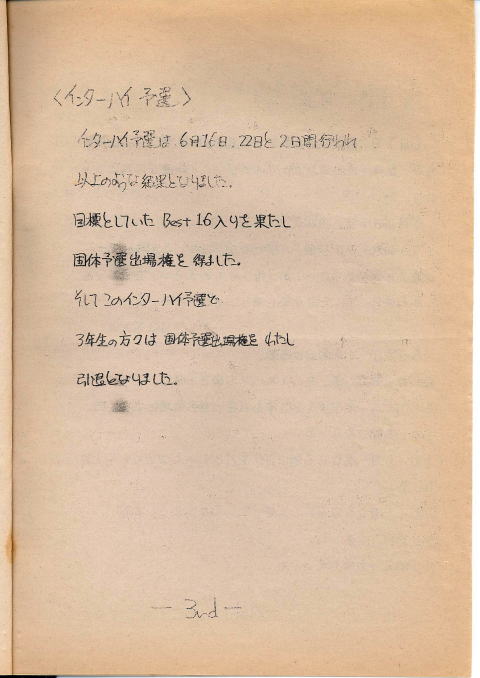 〈インターハイ予選〉
インターハイ予選は 6月16日, 22日と 2日間行われ
以上のような結果となりました。
目標としていた Best 16入りを果たし
国体予選出場権を得ました。
そしてこのインターハイ予選で
3年生の方々は 国体予選出場権を わたし
引退となりました。
— 3nd —